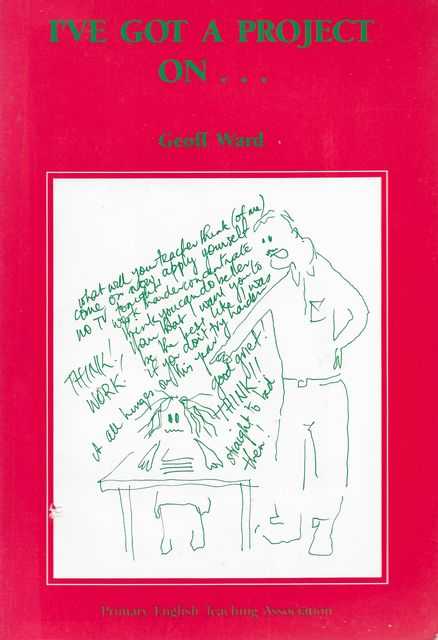 I'VE GOT A PROJECT
ON . . .
Geoff Ward
what will your teacher think (of me)
come on now, apply yourself
no TV tonight
work harder concentrate
think you can do better
than that I want you to
be the best like I was
if you don't try harder
THINK!
WORK!
it all hinges on this year!
good grief!
THINK!!!
straight to bed
then!
Primary English Teaching Association